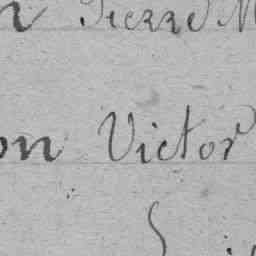 n Pierre M
on Victor